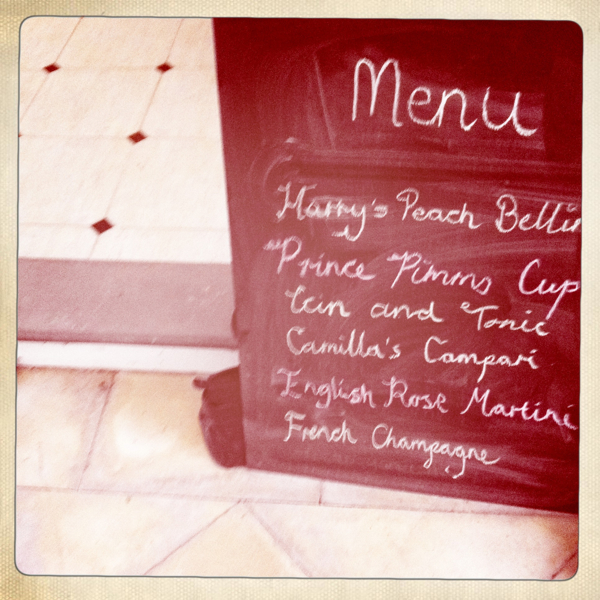 Menu
Harry's Peach Bellin
Prince Pimms Cup
Gin and Tonic
Camilla's Campari
English Rose Martini
French Champagne